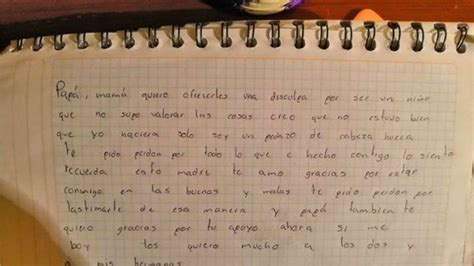 Papá, mamá quiero ofrecerles una disculpa por ser un niño
que no supo valorar las cosas creo que no estudo bien
que yo naciera solo soy un pedazo de cabeza hueca
te pido perdon por todo lo que e hecho contigo lo siento
recuerda esto madre te amo gracias por estar
conmigo en las buenas y malas te pido perdon por
lastimarte de esa manera y papá tambien te
quiero gracias por tu apoyo ahora si me
boy los quiero mucho a los dos y
a mis hermanos